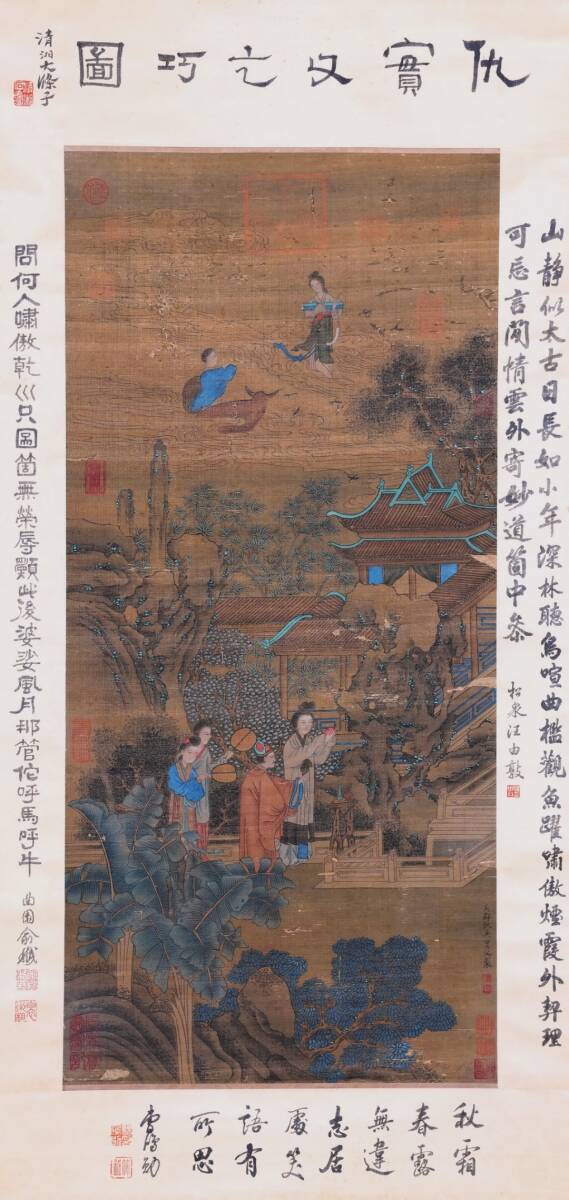 仇實父乞巧圖
清湘大滌子
山靜似太古日長如小年深林聽鳥喧曲檻觀魚躍嘯傲煙霞外契理
可忘言閒情雲外寄妙道箇中參
松泉汪由敦
問何人嘯傲乾巛只圖箇無榮辱願此後婆娑風月那管佗呼馬呼牛
曲園俞樾
秋霜
春露
無違
志居
處笑
語有
所思